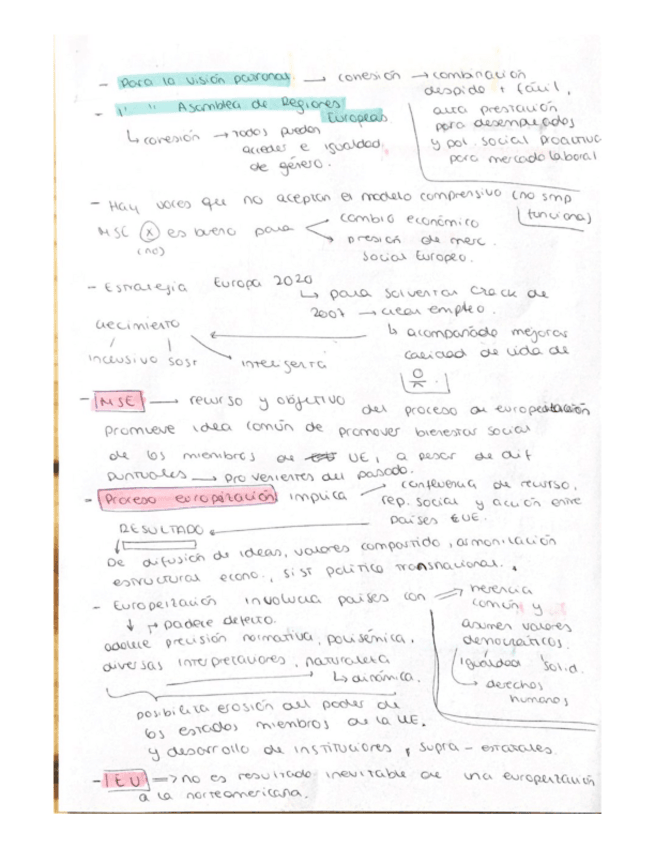 - Para la visión patronal → conexión → combinación
despido + fácil,
alta prestación
para desempleados
y pol. social proactiva
para mercado laboral
- " " Asamblea de Regiones
Europeas
↳ conexión → todos puedan
acceder e igualdad
de género.
- Hay voces que no aceptan el modelo comprensivo (no smp
funciona)
MSE (x) es bueno para
(no)
cambio económico
presión de merc.
social Europeo.
- Estrategia Europa 2020
↳ para solventar crack de
2007 → crear empleo.
↳ acompañado mejoras
calidad de vida de
crecimiento
inclusivo sost inteligente
- MSE → recurso y objetivo del proceso de europeización
promueve idea común de promover bienestar social
de los miembros de UE, a pesar de dif
puntuales → provenientes del pasado.
- Proceso europización implica
confluencia de recurso,
rep. social y acción entre
países EUE.
RESULTADO
De difusión de ideas, valores compartido, armonización
estructural econo., sist político transnacional.
- Europeización involucra países con ⇒ herencia
común y
asumen valores
democráticos.
igualdad solid.
derechos
humanos
↓ → padece defecto.
adolece precisión normativa, polisémica,
diversas interpretaciones, naturaleza
↳ dinámica.
posibilita erosión del poder de
los estados miembros de la UE.
y desarrollo de instituciones, supra-estatales.
- IEU ⇒ no es resultado inevitable de una europeización
a la norteamericana.